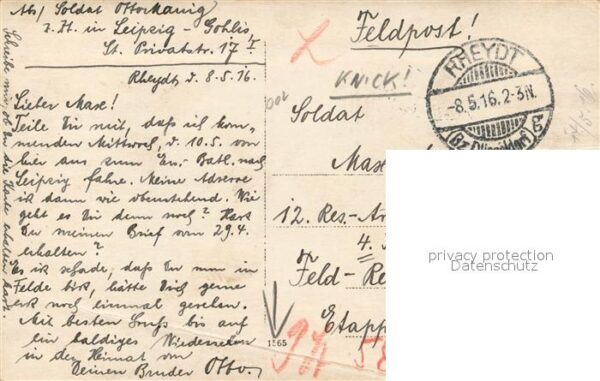 Abs/ Soldat Otto
z. Zt. in Leipzig - Gohlis
St. Privatstr. 17 I
Rheydt, d. 8.5.16.
Lieber Max!
Teile Dir mit, daß ich kom-
menden Mittwoch, d. 10.5. von
hier aus zum Ers.- Batl. nach
Leipzig fahre. Meine Adresse
ist dann wie obenstehend. Wie
geht es Dir denn noch? Hast
Du meinen Brief vom 29.4.
erhalten?
Es ist schade, daß Du nun im
Felde bist, hätte Dich gerne
erst noch einmal gesehen.
Mit besten Gruß bis auf
ein baldiges Wiedersehen
in der Heimat von
Deinen Bruder Otto.
Schreibe mir, ob Du die Karte erhalten hast.
Feldpost!
KNICK!
RHEYDT
-8.5.16.2-3N.
(Bz. Düsseldorf)
Soldat
Max
12. Res.-
4.
Feld-Re
Etapp
1565
privacy protection
Datenschutz